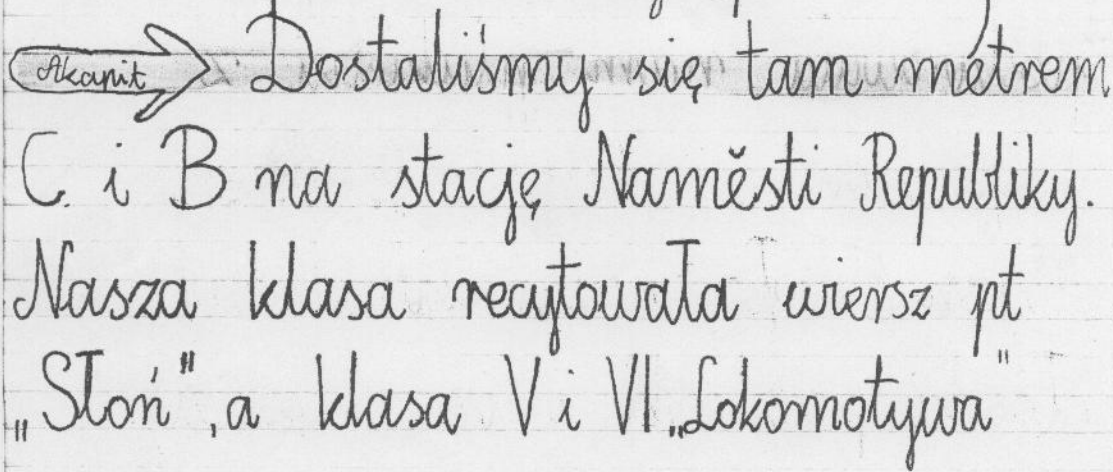 Akapit Dostaliśmy się tam metrem
C i B na stację Naměsti Republiky.
Nasza klasa recytowała wiersz pt
„Słoń", a klasa V i VI „Lokomotywa"